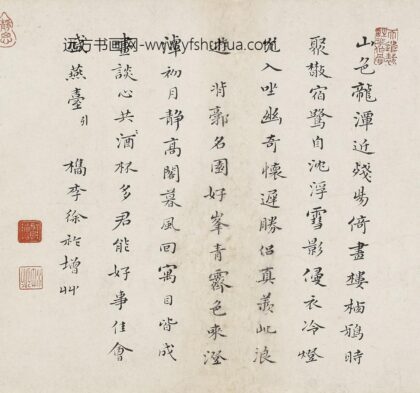 远方书画网--www.yfshuhua.com
山色龍潭近殘陽倚畫樓栖鴉時
聚散宿鷺自沈浮雲影侵衣冷燈
入坐幽奇懷遲勝侶真羨此浪
遊 背郭名園好峯青霽色來澄
潭初月靜高閣暮風回寓目皆成
畫談心共酒杯多君能好事佳會
燕臺 引 檇李徐 增艸